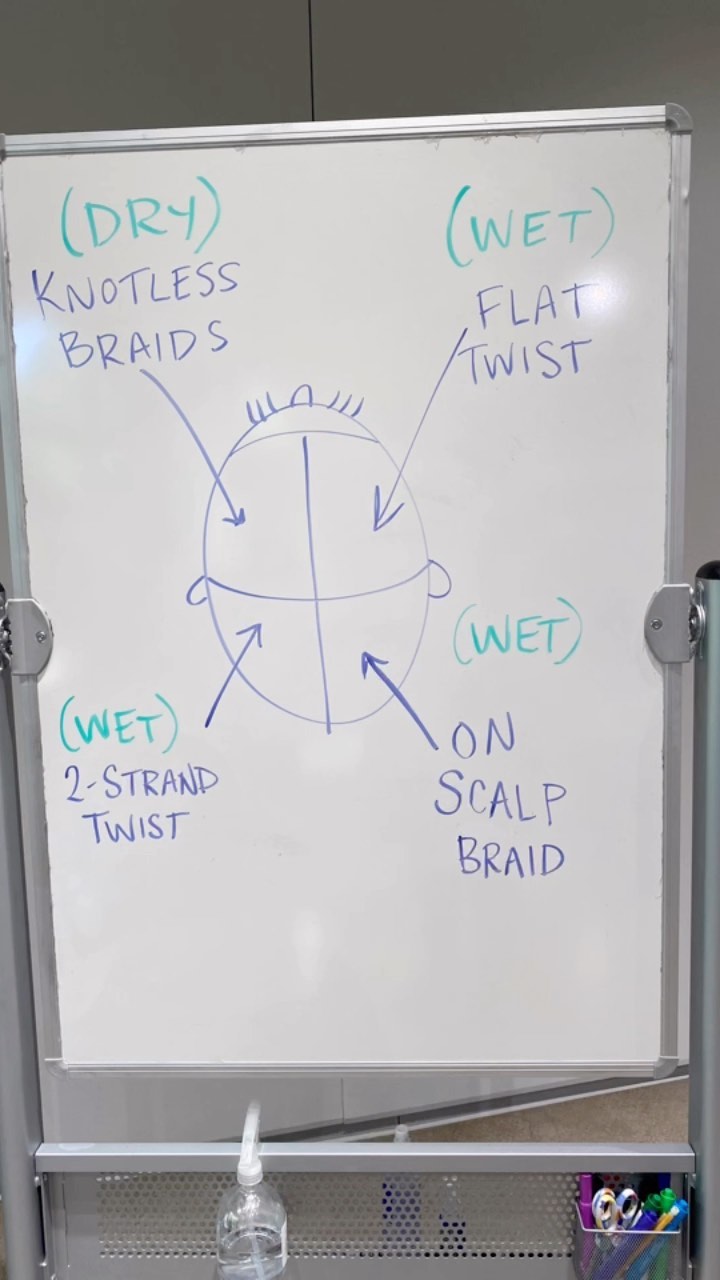 (DRY)
KNOTLESS
BRAIDS
(WET)
FLAT
TWIST
(WET)
2-STRAND
TWIST
(WET)
ON
SCALP
BRAID